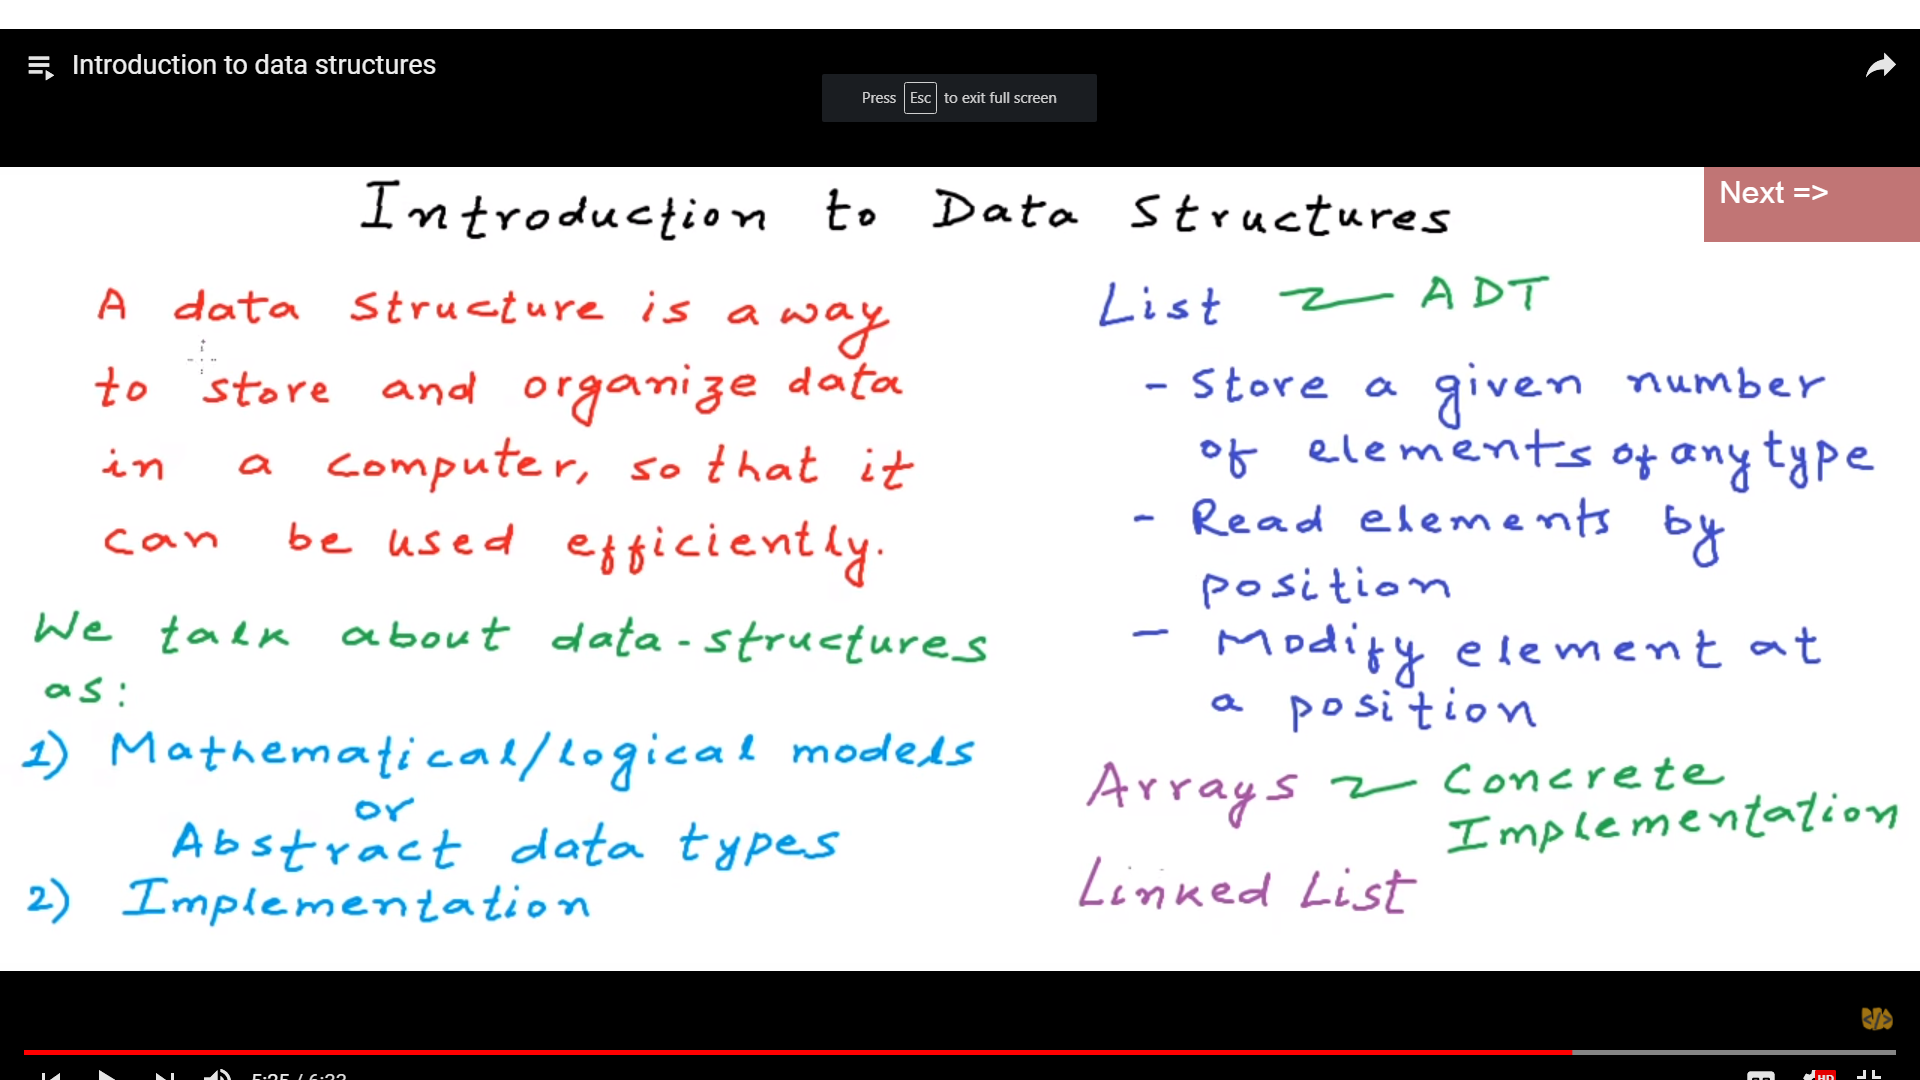 Introduction to data structures
Press Esc to exit full screen
Next =>
Introduction to Data Structures
A data structure is a way
to store and organize data
in a computer, so that it
can be used efficiently.
We talk about data-structures
as:
1) Mathematical/logical models
or
Abstract data types
2) Implementation
List ADT
- Store a given number
of elements of any type
- Read elements by
position
- Modify element at
a position
Arrays Concrete
Implementation
Linked List
5:25 / 6:33
HD